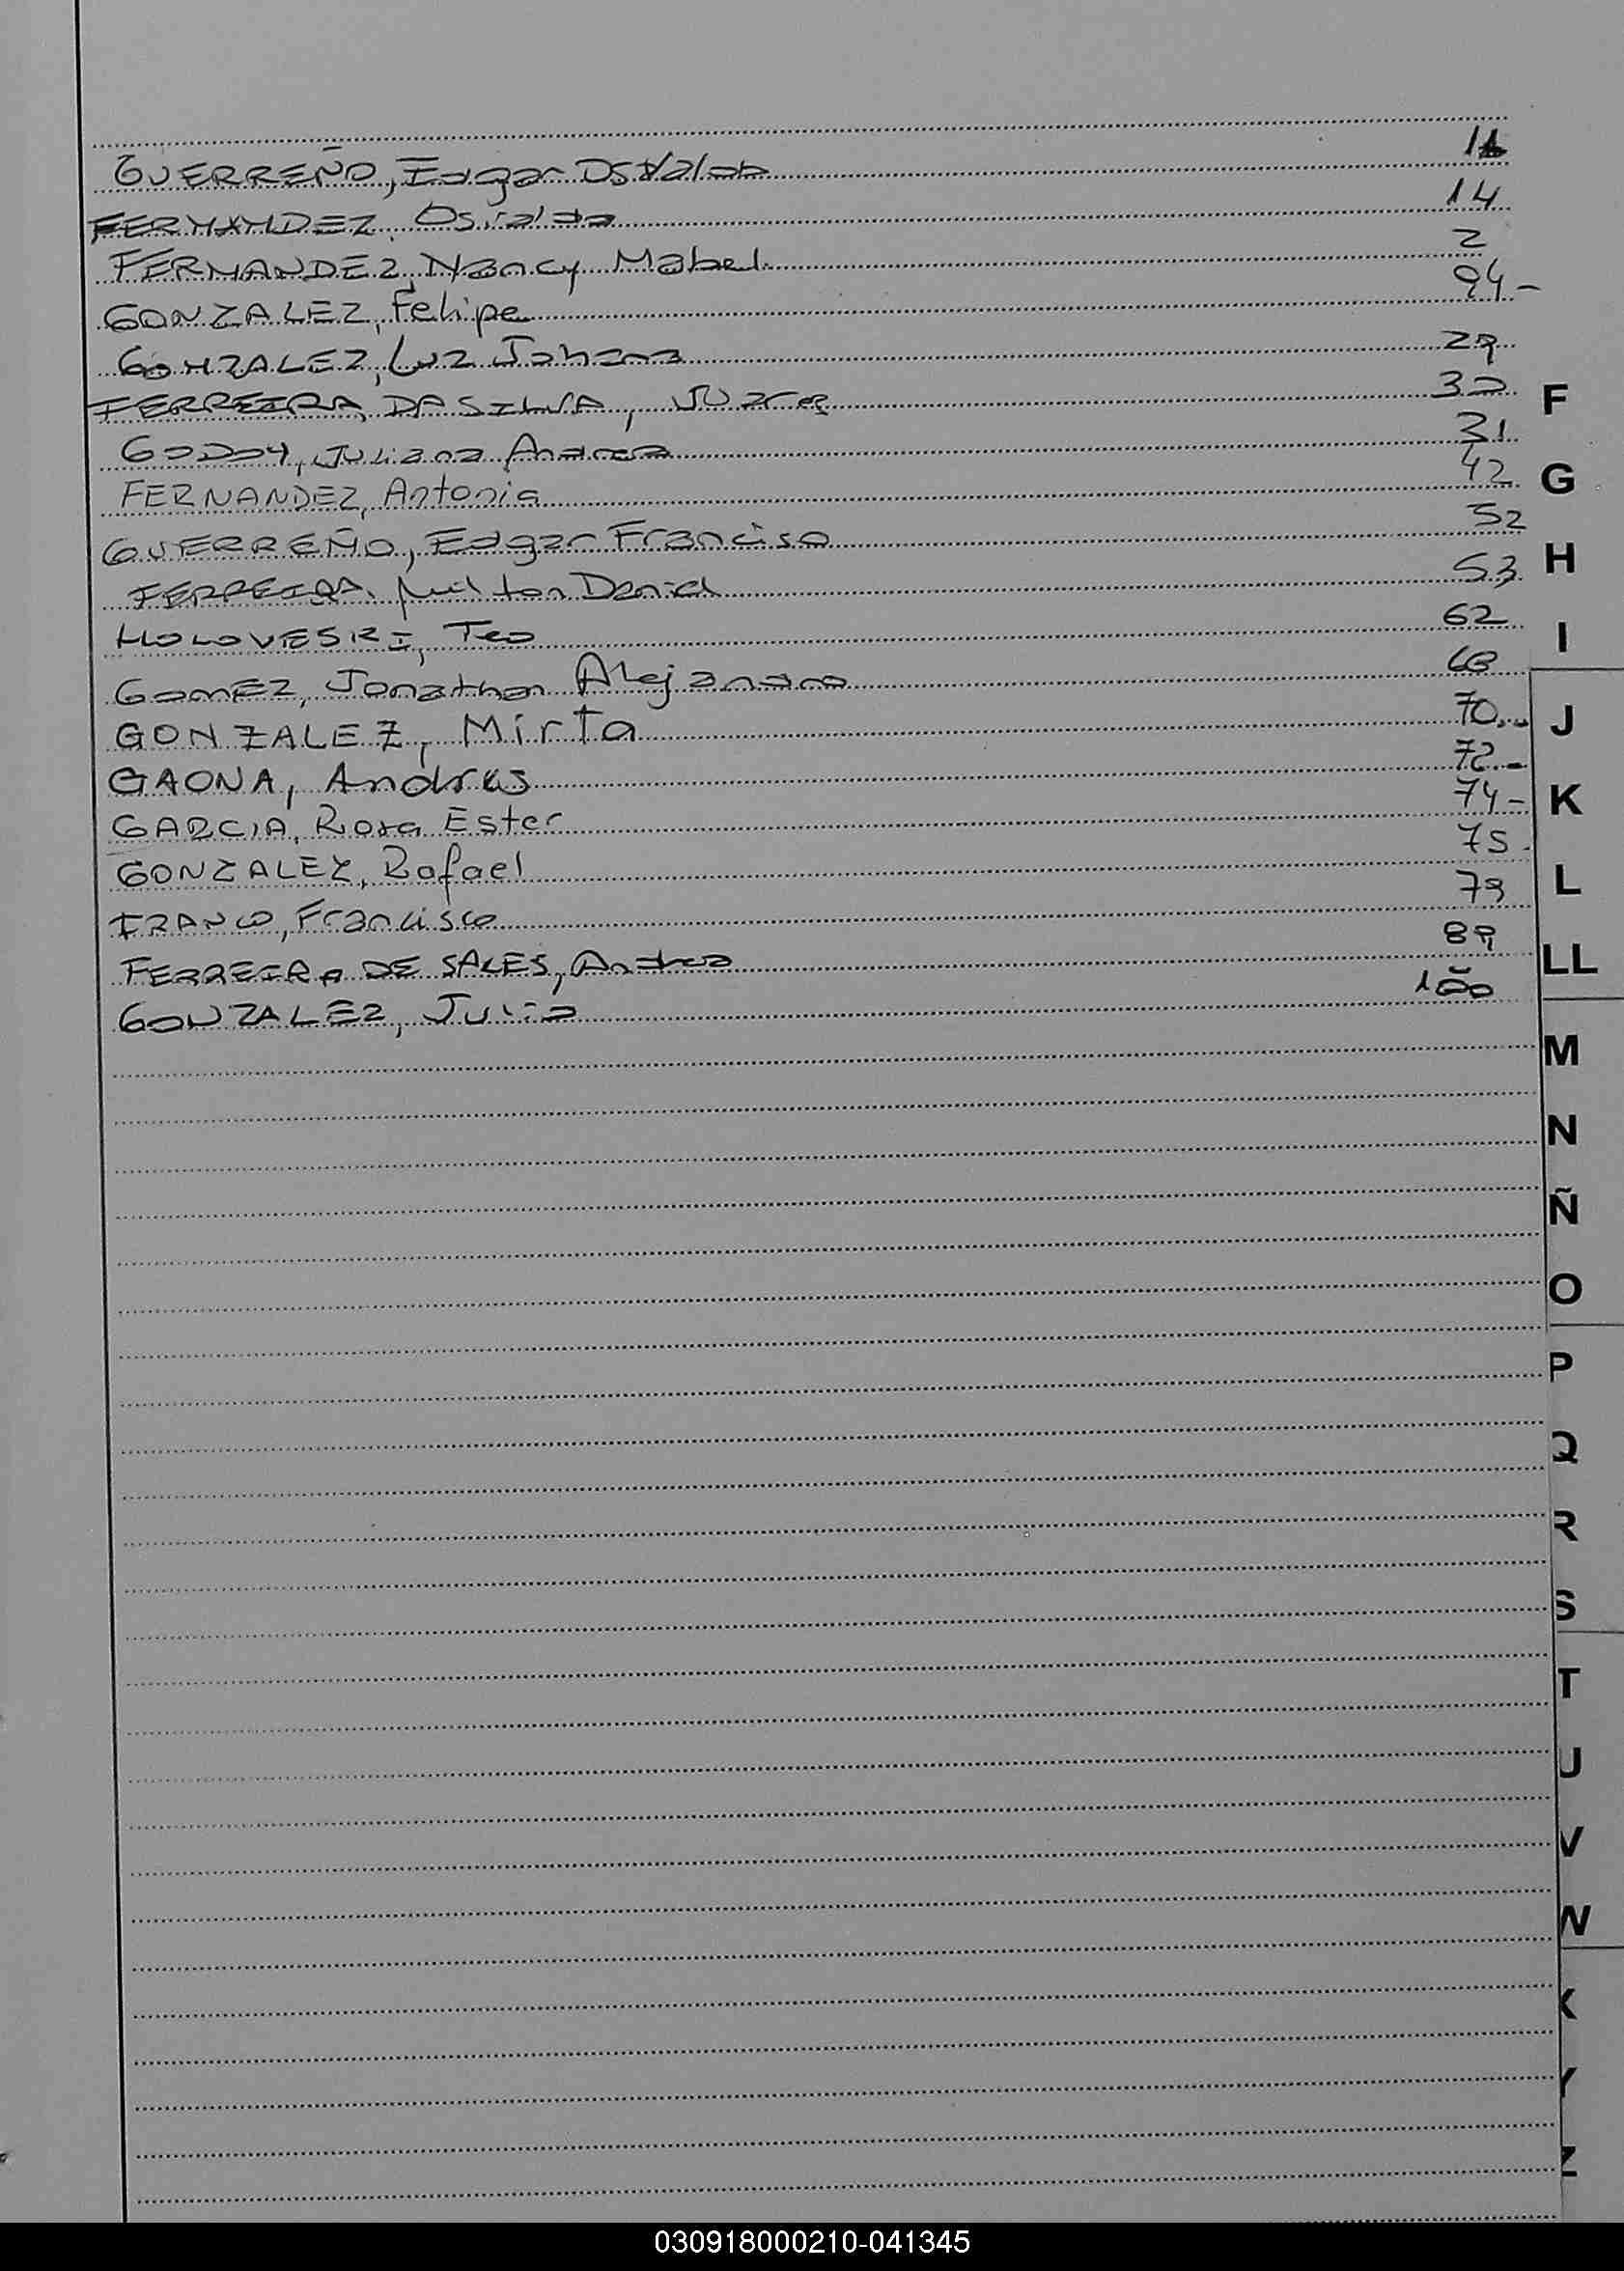 GUERREÑO, Edgar Osvaldo 11
FERNANDEZ, Osvaldo 14
FERNANDEZ, Nancy Mabel 2
GONZALEZ, Felipe 94-
GONZALEZ, Luz Johana 29
FERREIRA DA SILVA, 30
GODOY, Juliana Andrea 31
FERNANDEZ, Antonia 42
GUERREÑO, Edgar Franciso 52
FERREIRA, Milton Daniel 53
HOLOVESKI, Teo 62
GOMEZ, Jonathan Alejandro 68
GONZALEZ, Mirta 70.-
GAONA, Andres 72.-
GARCIA, Rosa Ester 74-
GONZALEZ, Rafael 75.
FRANCO, Francisco 79
FERREIRA DE SALES, Andrea 89
GONZALEZ, Julia 100
F
G
H
I
J
K
L
LL
M
N
Ñ
O
P
Q
R
S
T
U
V
W
X
Y
Z
030918000210-041345